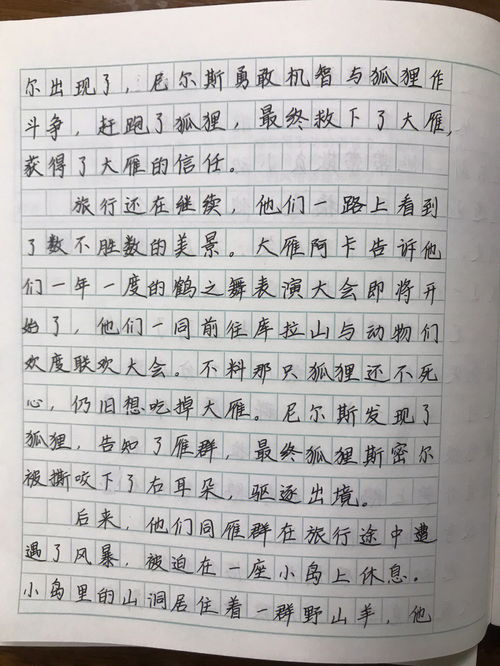 尔出现了，尼尔斯勇敢机智与狐狸作
斗争，赶跑了狐狸，最终救下了大雁，
获得了大雁的信任。
旅行还在继续，他们一路上看到
了数不胜数的美景。大雁阿卡告诉他
们一年一度的鹤之舞表演大会即将开
始了，他们一同前往库拉山与动物们
欢度联欢大会。不料那只狐狸还不死
心，仍旧想吃掉大雁。尼尔斯发现了
狐狸，告知了雁群，最终狐狸斯密尔
被撕咬下了右耳朵，驱逐出境。
后来，他们同雁群在旅行途中遭
遇了风暴，被迫在一座小岛上休息。
小岛里的山洞居住着一群野山羊，他